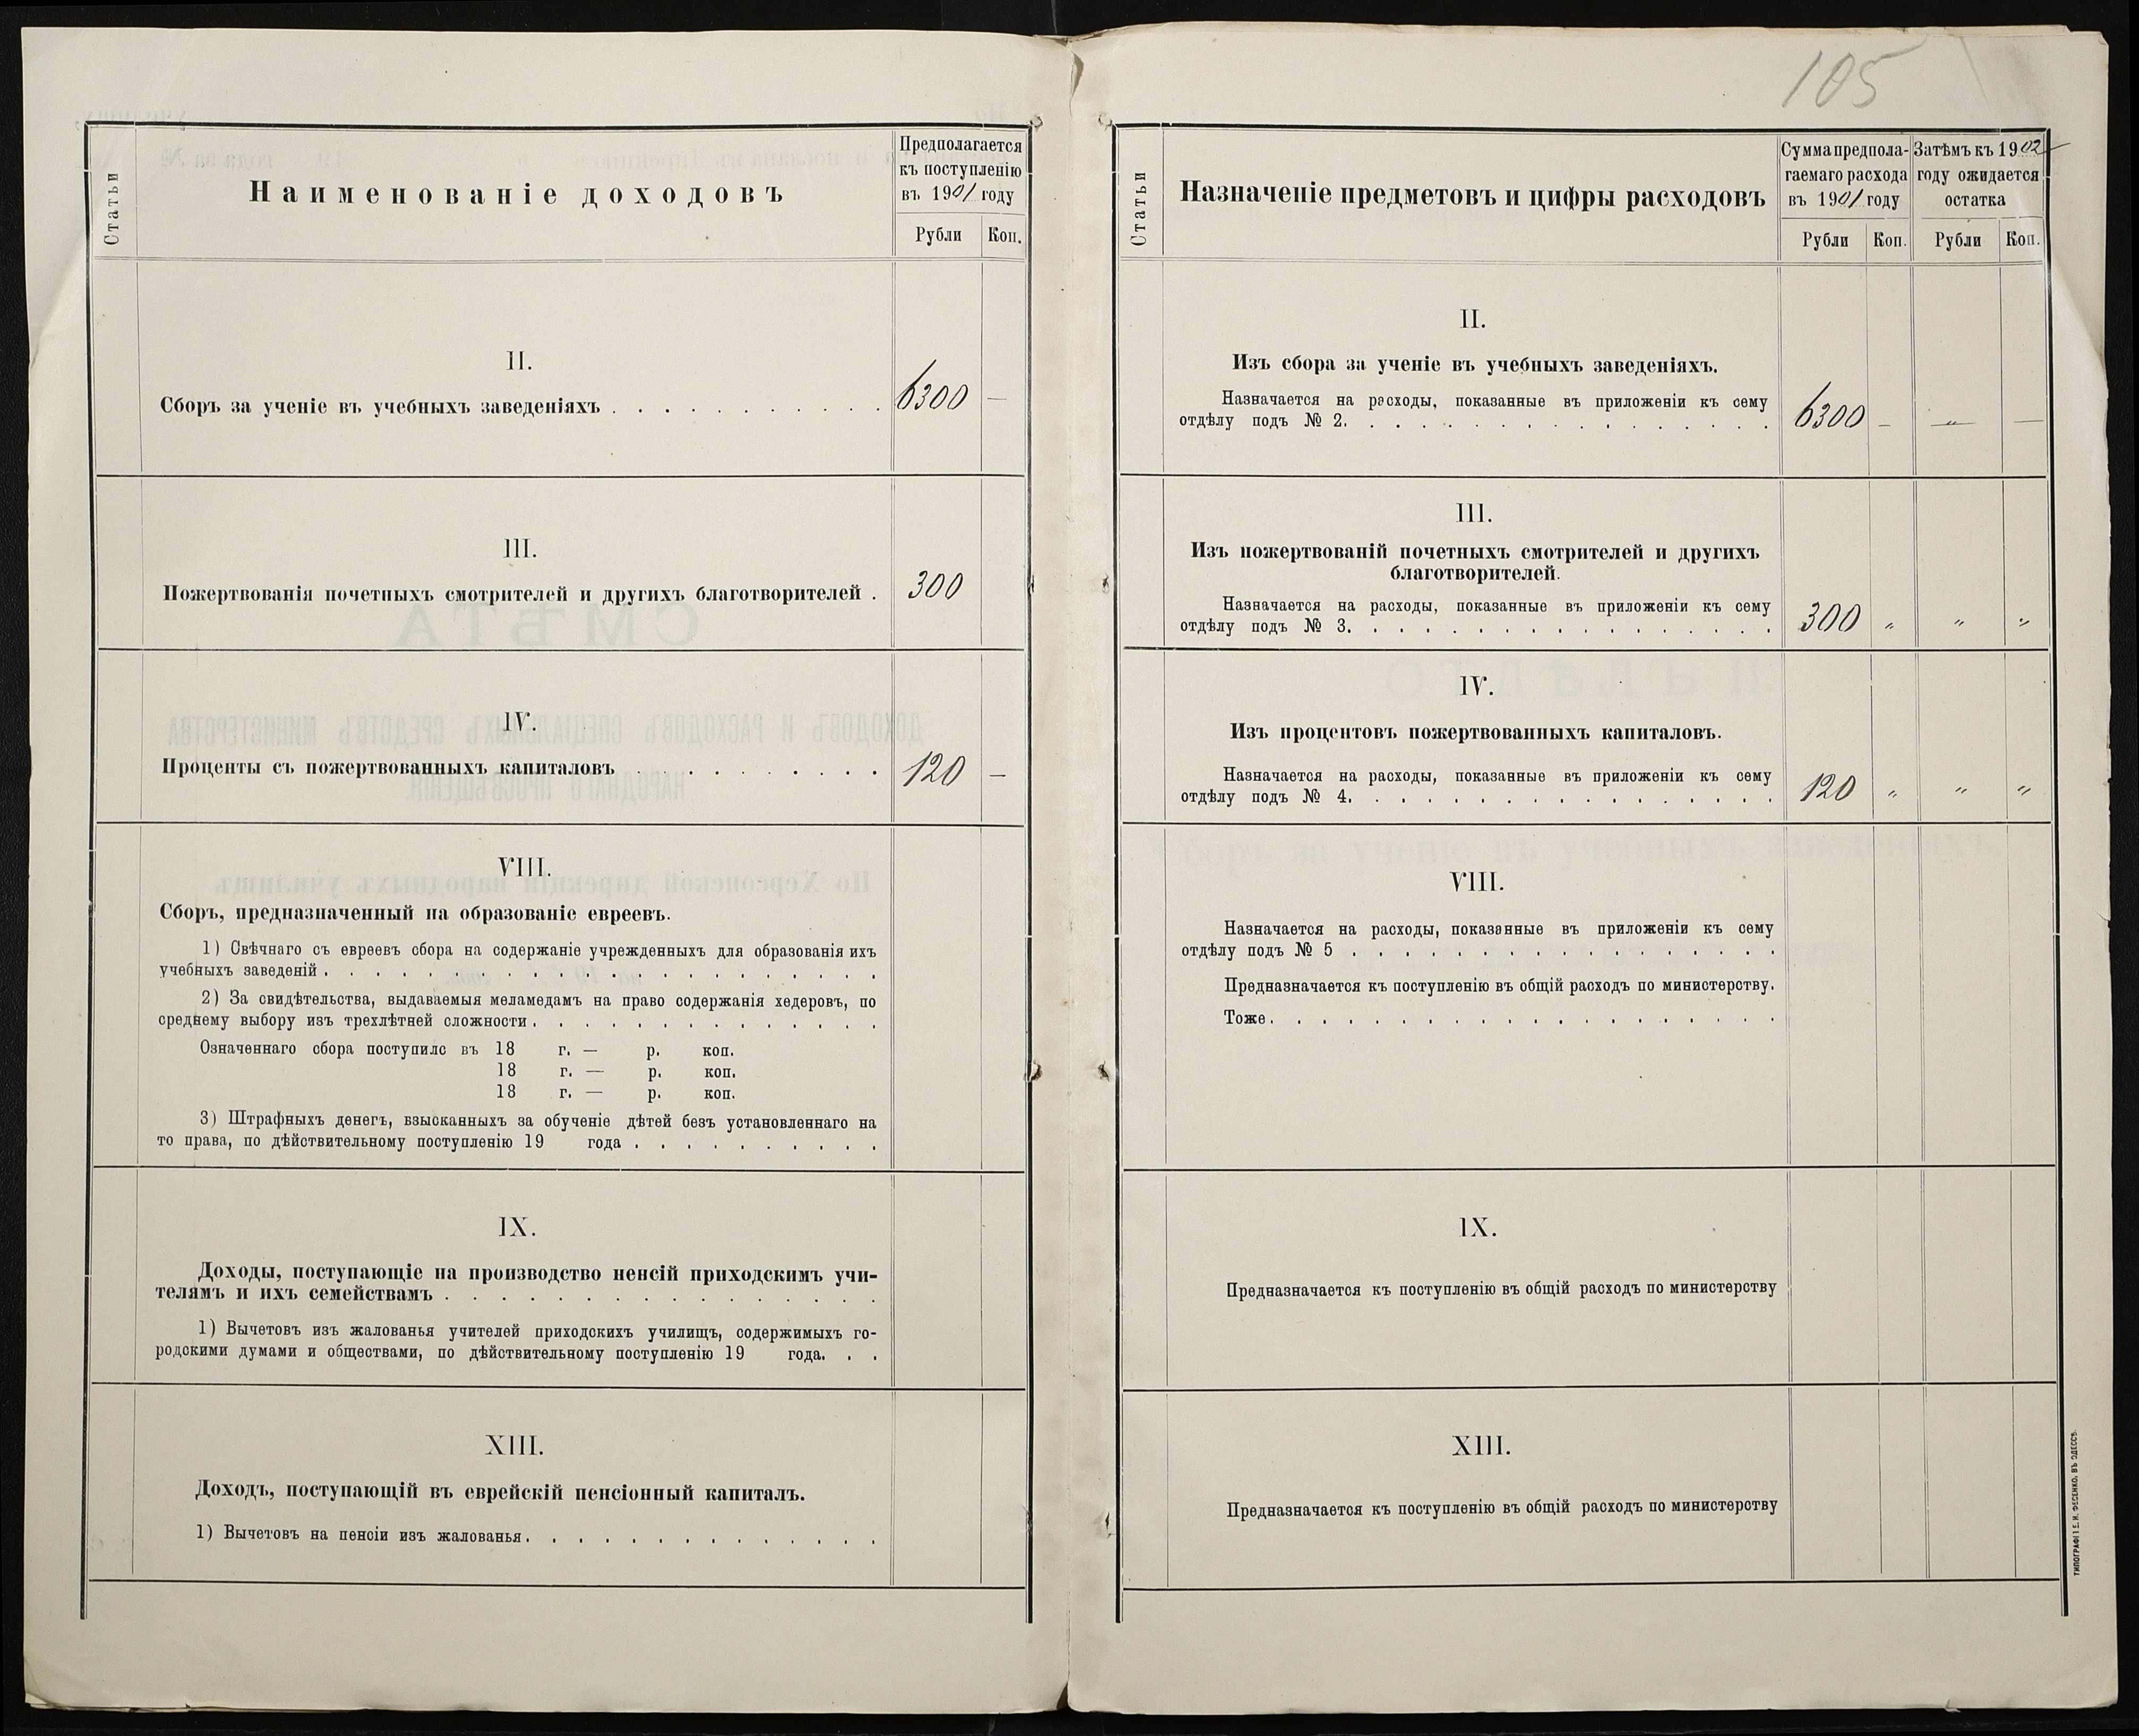 105
Статьи
Наименованіе доходовъ
Предполагается
къ поступленію
въ 1901 году
Рубли Коп.
II.
Сборъ за ученіе въ учебныхъ заведеніяхъ . . . . . . . . . . 6300 —
III.
Пожертвованія почетныхъ смотрителей и другихъ благотворителей . 300
IV.
Проценты съ пожертвованныхъ капиталовъ . . . . . . . . . . 120 —
VIII.
Сборъ, предназначенный на образованіе евреевъ.
1) Свѣчнаго съ евреевъ сбора на содержаніе учрежденныхъ для образованія ихъ
учебныхъ заведеній . . . . . . . . . . . . . . . . . . . . . .
2) За свидѣтельства, выдаваемыя меламедамъ на право содержанія хедеровъ, по
среднему выбору изъ трехлѣтней сложности . . . . . . . . . . . . . .
Означеннаго сбора поступило въ 18 г. — р. коп.
18 г. — р. коп.
18 г. — р. коп.
3) Штрафныхъ денегъ, взысканныхъ за обученіе дѣтей безъ установленнаго на
то права, по дѣйствительному поступленію 19 года . . . . . . . . . .
IX.
Доходы, поступающіе на производство пенсій приходскимъ учи-
телямъ и ихъ семействамъ . . . . . . . . . . . . . . . .
1) Вычетовъ изъ жалованья учителей приходскихъ училищъ, содержимыхъ го-
родскими думами и обществами, по дѣйствительному поступленію 19 года. . .
XIII.
Доходъ, поступающій въ еврейскій пенсіонный капиталъ.
1) Вычетовъ на пенсіи изъ жалованья. . . . . . . . . . . . . .
Статьи
Назначеніе предметовъ и цифры расходовъ
Сумма предпола-
гаемаго расхода
въ 1901 году
Рубли Коп.
Затѣмъ къ 1902
году ожидается
остатка
Рубли Коп.
II.
Изъ сбора за ученіе въ учебныхъ заведеніяхъ.
Назначается на расходы, показанные въ приложеніи къ сему
отдѣлу подъ № 2. . . . . . . . . . . . . . . . . 6300 — „ —
III.
Изъ пожертвованій почетныхъ смотрителей и другихъ
благотворителей.
Назначается на расходы, показанные въ приложеніи къ сему
отдѣлу подъ № 3. . . . . . . . . . . . . . . . . 300 „ „ „
IV.
Изъ процентовъ пожертвованныхъ капиталовъ.
Назначается на расходы, показанные въ приложеніи къ сему
отдѣлу подъ № 4. . . . . . . . . . . . . . . . . 120 „ „ „
VIII.
Назначается на расходы, показанные въ приложеніи къ сему
отдѣлу подъ № 5 . . . . . . . . . . . . . . . . .
Предназначается къ поступленію въ общій расходъ по министерству.
Тоже. . . . . . . . . . . . . . . . . . . .
IX.
Предназначается къ поступленію въ общій расходъ по министерству
XIII.
Предназначается къ поступленію въ общій расходъ по министерству
ТИПОГРАФІЯ Е. И. ФЕСЕНКО, ВЪ ОДЕССѢ.